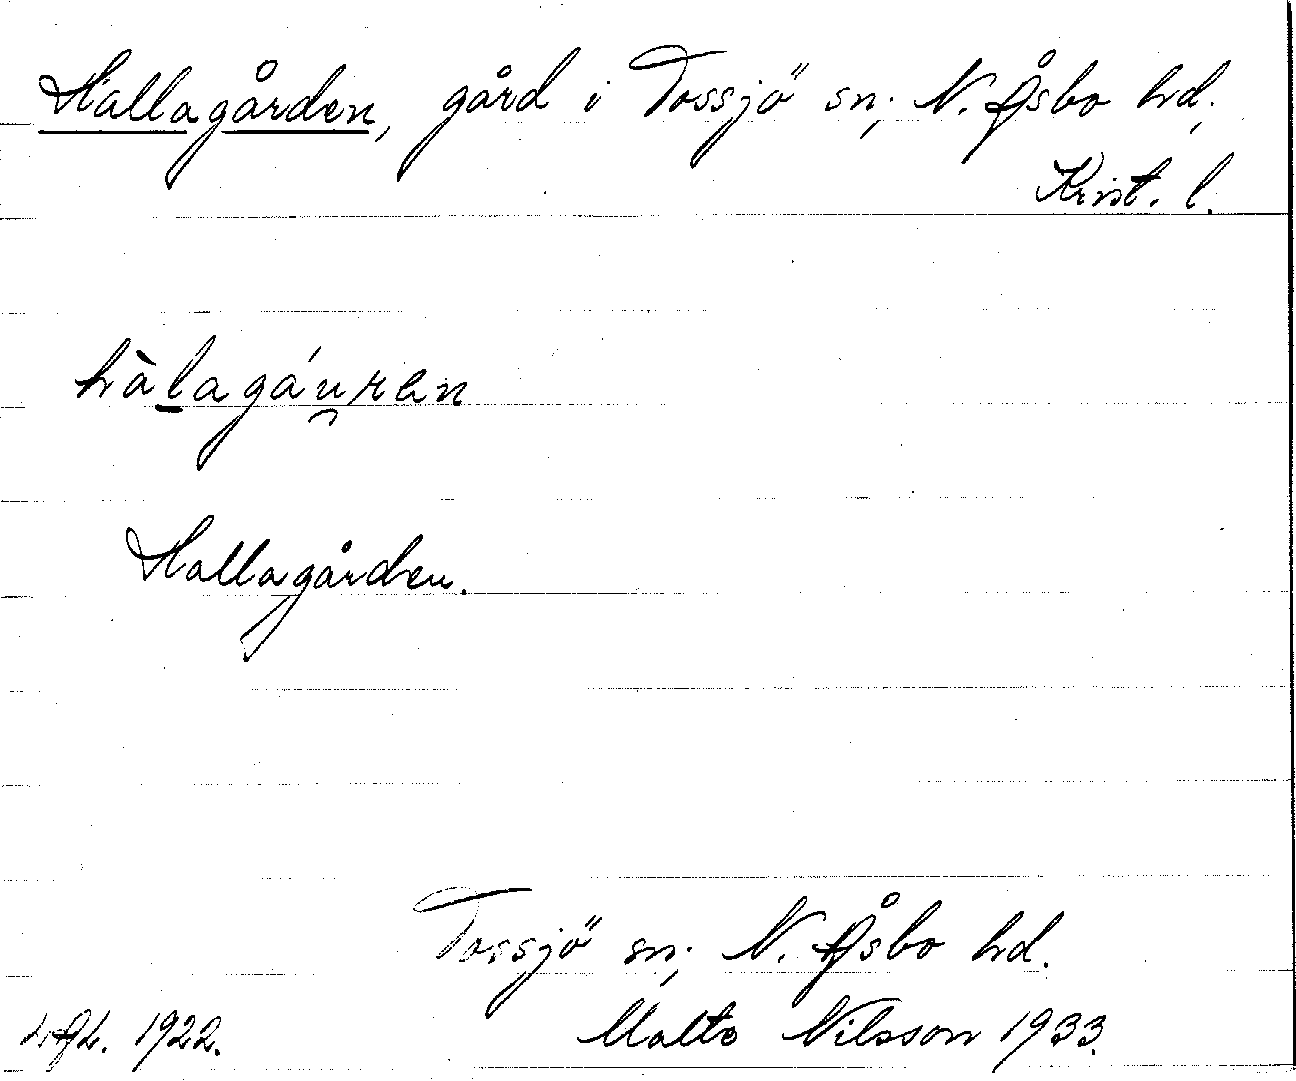 Hallagården, gård i Tossjö sn, N. Åsbo hd,
Krist. l.
hàlagáu̯ren
Hallagården.
Tossjö sn, N. Åsbo hd.
1922. Malte Nilsson 1933.